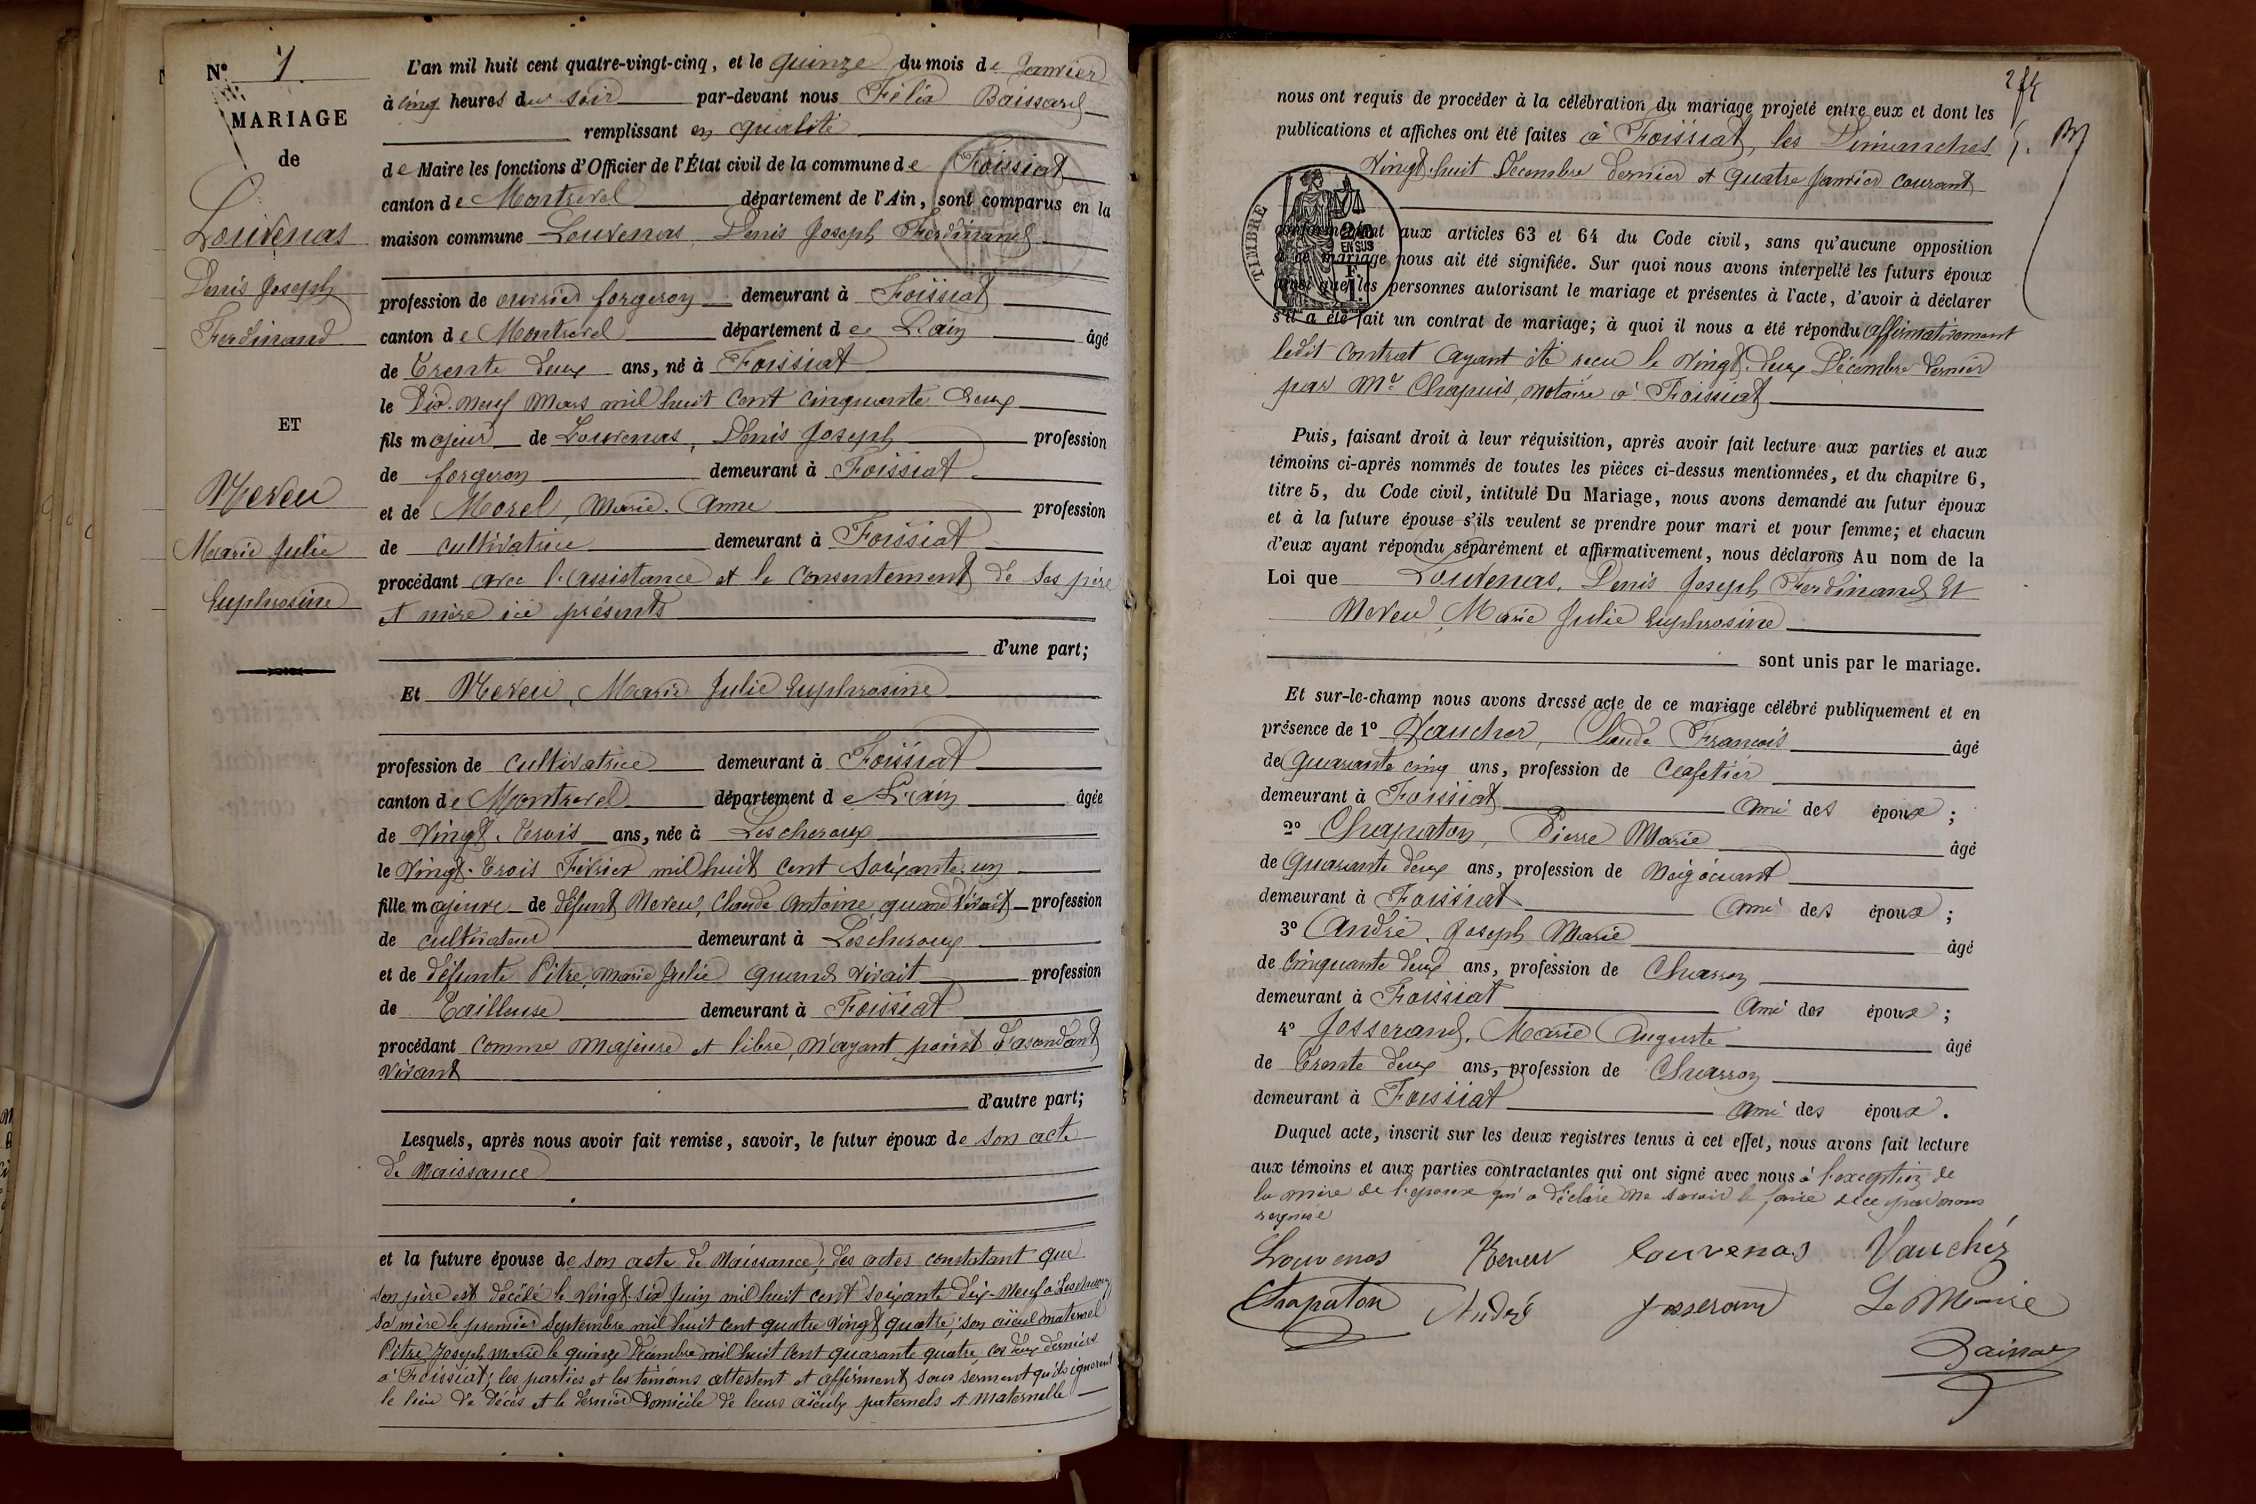 N° 1.
MARIAGE
de
Louvenas
Denis Joseph
Ferdinand
ET
Neveu
Marie Julie
Euphrosine
L'an mil huit cent quatre-vingt-cinq, et le quinze du mois de Janvier
à cinq heures du soir par-devant nous Félix Baissard
remplissant en qualité
de Maire les fonctions d'Officier de l'État civil de la commune de Foissiat
canton de Montrevel département de l'Ain, sont comparus en la
maison commune Louvenas, Denis Joseph Ferdinand
profession de ouvrier forgeron demeurant à Foissiat
canton de Montrevel département de L'ain âgé
de trente deux ans, né à Foissiat
le Dix-neuf Mars mil huit cent cinquante Deux
fils majeur de Louvenas, Denis Joseph profession
de forgeron demeurant à Foissiat
et de Morel, Marie-Anne profession
de cultivatrice demeurant à Foissiat
procédant avec l'assistance et le consentement de ses père
et mère ici présents
d'une part;
Et Neveu, Marie Julie Euphrosine
profession de cultivatrice demeurant à Foissiat
canton de Montrevel département de L'ain âgée
de vingt-trois ans, née à Lescheroux
le vingt-trois Février mil huit cent soixante-un
fille majeure de défunt Neveu, Claude Antoine quand vivait profession
de cultivateur demeurant à Lescheroux
et de défunte Pitre, Marie Julie quand vivait profession
de Tailleuse demeurant à Foissiat
procédant comme majeure et libre, n'ayant point d'ascendant
vivant
d'autre part;
Lesquels, après nous avoir fait remise, savoir, le futur époux de son acte
de naissance
et la future épouse de son acte de Naissance, des actes constatant que
son père est décédé le vingt-six Juin mil huit cent soixante dix-neuf à Lescheroux
sa mère le premier septembre mil huit cent quatre vingt quatre; son aïeul maternel
Pitre, Joseph Marie le quinze Décembre mil huit cent quarante quatre, ces deux derniers
à Foissiat; les parties et les témoins attestent et affirment sous serment qu'ils ignorent
le lieu de décès et le dernier domicile de leurs aïeuls paternels et maternelle
nous ont requis de procéder à la célébration du mariage projeté entre eux et dont les
publications et affiches ont été faites à Foissiat, les Dimanches
vingt-huit Décembre dernier et quatre Janvier courant
TIMBRE
EN SUS
conformément aux articles 63 et 64 du Code civil, sans qu'aucune opposition
à ce mariage nous ait été signifiée. Sur quoi nous avons interpellé les futurs époux
ainsi que les personnes autorisant le mariage et présentes à l'acte, d'avoir à déclarer
s'il a été fait un contrat de mariage; à quoi il nous a été répondu affirmativement
ledit contrat ayant été reçu le vingt-deux Décembre dernier
par Me Chapuis, notaire à Foissiat
Puis, faisant droit à leur réquisition, après avoir fait lecture aux parties et aux
témoins ci-après nommés de toutes les pièces ci-dessus mentionnées, et du chapitre 6,
titre 5, du Code civil, intitulé Du Mariage, nous avons demandé au futur époux
et à la future épouse s'ils veulent se prendre pour mari et pour femme; et chacun
d'eux ayant répondu séparément et affirmativement, nous déclarons Au nom de la
Loi que Louvenas, Denis Joseph Ferdinand Et
Neveu, Marie Julie Euphrosine
sont unis par le mariage.
Et sur-le-champ nous avons dressé acte de ce mariage célébré publiquement et en
présence de 1° Vaucher, Claude François âgé
de quarante cinq ans, profession de Cafetier
demeurant à Foissiat ami des époux;
2° Chapaton, Pierre Marie âgé
de quarante deux ans, profession de Négociant
demeurant à Foissiat ami des époux;
3° André, Joseph Marie âgé
de cinquante deux ans, profession de Charron
demeurant à Foissiat ami des époux;
4° Josserand, Marie Auguste âgé
de trente deux ans, profession de Charron
demeurant à Foissiat ami des époux.
Duquel acte, inscrit sur les deux registres tenus à cet effet, nous avons fait lecture
aux témoins et aux parties contractantes qui ont signé avec nous à l'exception de
la mère de l'époux qui a déclaré ne savoir le faire de ce par nous
requise
Louvenas Neveu Louvenas Vaucher
Chapaton André Josserand Le Maire
Baissard